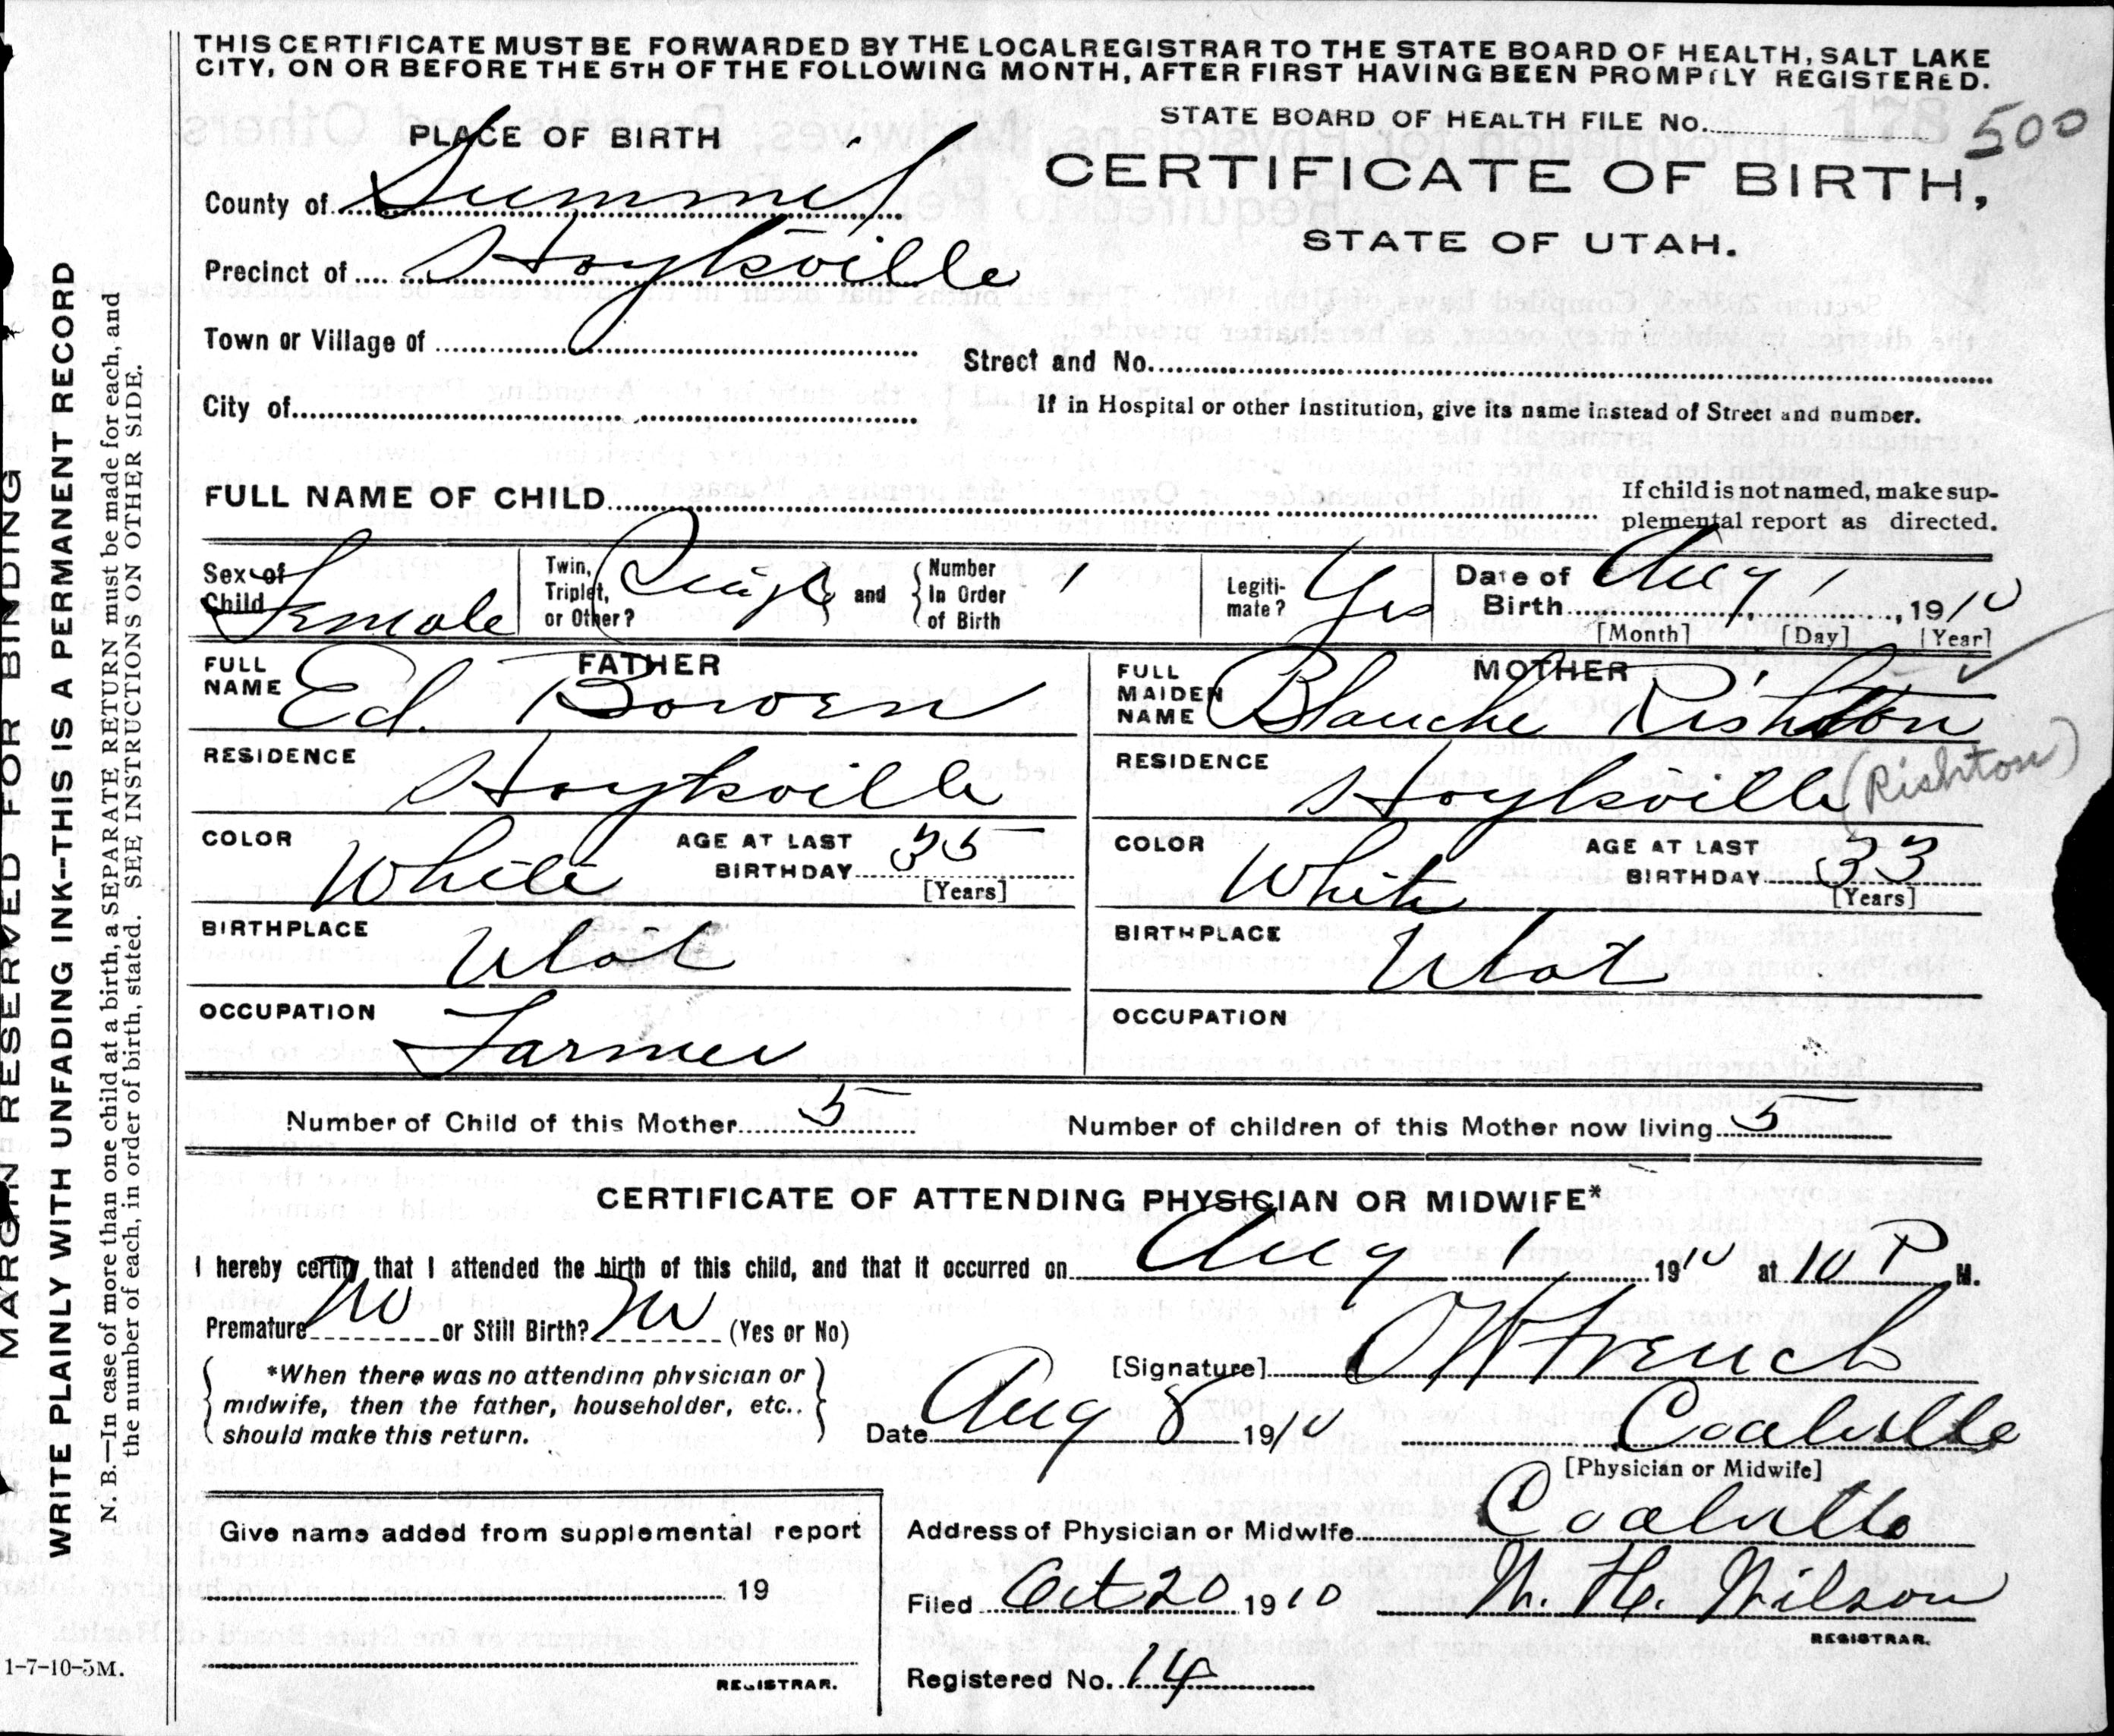 THIS CERTIFICATE MUST BE FORWARDED BY THE LOCAL REGISTRAR TO THE STATE BOARD OF HEALTH, SALT LAKE
CITY, ON OR BEFORE THE 5TH OF THE FOLLOWING MONTH, AFTER FIRST HAVING BEEN PROMPTLY REGISTERED.
STATE BOARD OF HEALTH FILE No. 178 500
PLACE OF BIRTH
CERTIFICATE OF BIRTH,
STATE OF UTAH.
County of Summit
Precinct of Hoytsville
Town or Village of
Street and No.
City of
If in Hospital or other Institution, give its name instead of Street and number.
FULL NAME OF CHILD
If child is not named, make sup-
plemental report as directed.
Sex of Child Female
Twin, Triplet, or Other? Single and Number In Order of Birth 1
Legiti-mate? Yes
Date of Birth Aug 1, 1910
[Month] [Day] [Year]
FATHER
FULL NAME Ed. Bowen
RESIDENCE Hoytsville
COLOR White AGE AT LAST BIRTHDAY 35
[Years]
BIRTHPLACE Utah
OCCUPATION Farmer
MOTHER
FULL MAIDEN NAME Blanche Rishton
(Rishton)
RESIDENCE Hoytsville
COLOR White AGE AT LAST BIRTHDAY 33
[Years]
BIRTHPLACE Utah
OCCUPATION
Number of Child of this Mother 5 Number of children of this Mother now living 5
CERTIFICATE OF ATTENDING PHYSICIAN OR MIDWIFE*
I hereby certify that I attended the birth of this child, and that it occurred on Aug 1 1910 at 10 P M.
Premature No or Still Birth? No (Yes or No)
*When there was no attending physician or
midwife, then the father, householder, etc..
should make this return.
[Signature] O W French
Date Aug 8 1910 Coalville
[Physician or Midwife]
Address of Physician or Midwife Coalville
Filed Oct 20 1910 W. H. Wilson
REGISTRAR.
Registered No. 14
Give name added from supplemental report
19
REGISTRAR.
1-7-10-5M.
MARGIN RESERVED FOR BINDING
WRITE PLAINLY WITH UNFADING INK--THIS IS A PERMANENT RECORD
N. B.—In case of more than one child at a birth, a SEPARATE RETURN must be made for each, and
the number of each, in order of birth, stated. SEE INSTRUCTIONS ON OTHER SIDE.